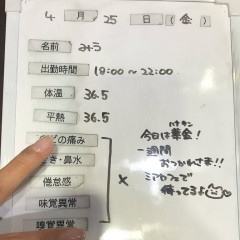 4 月 25 日 (金)
名前 みう
出勤時間 18:00 〜 22:00
体温 36.5
平熱 36.5
の痛み
・鼻水
倦怠感
味覚異常
嗅覚異常
×
今日は華金!
一週間
おつかれさま!!
待ってるよ